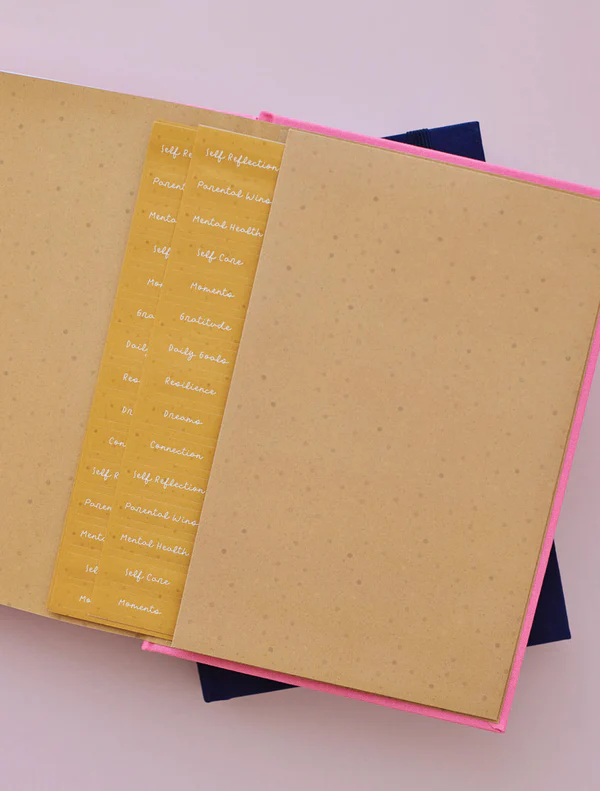 Self Re
Parent
Menta
Self
Mo
Gra
Dail
Res
Dr
Con
Self R
Paren
Ment
Sel
Mo
Self Reflection
Parental Wins
Mental Health
Self Care
Moments
Gratitude
Daily Goals
Resilience
Dreams
Connection
Self Reflection
Parental Wins
Mental Health
Self Care
Moments